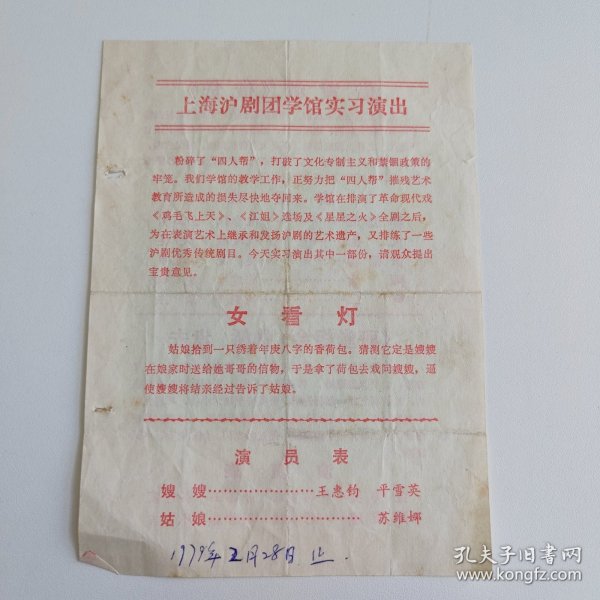 上海沪剧团学馆实习演出
粉碎了“四人帮”，打破了文化专制主义和禁锢政策的
牢笼。我们学馆的教学工作，正努力把“四人帮”摧残艺术
教育所造成的损失尽快地夺回来。学馆在排演了革命现代戏
《鸡毛飞上天》、《江姐》选场及《星星之火》全剧之后，
为在表演艺术上继承和发扬沪剧的艺术遗产，又排练了一些
沪剧优秀传统剧目。今天实习演出其中一部份，请观众提出
宝贵意见。
女看灯
姑娘拾到一只绣着年庚八字的香荷包。猜测它定是嫂嫂
在娘家时送给她哥哥的信物，于是拿了荷包去戏问嫂嫂，逼
使嫂嫂将结亲经过告诉了姑娘。
演员表
嫂嫂……………………王惠钧 平雪英
姑娘……………………………… 苏维娜
1979年2月28日止.
孔夫子旧书网
www.kongfz.com